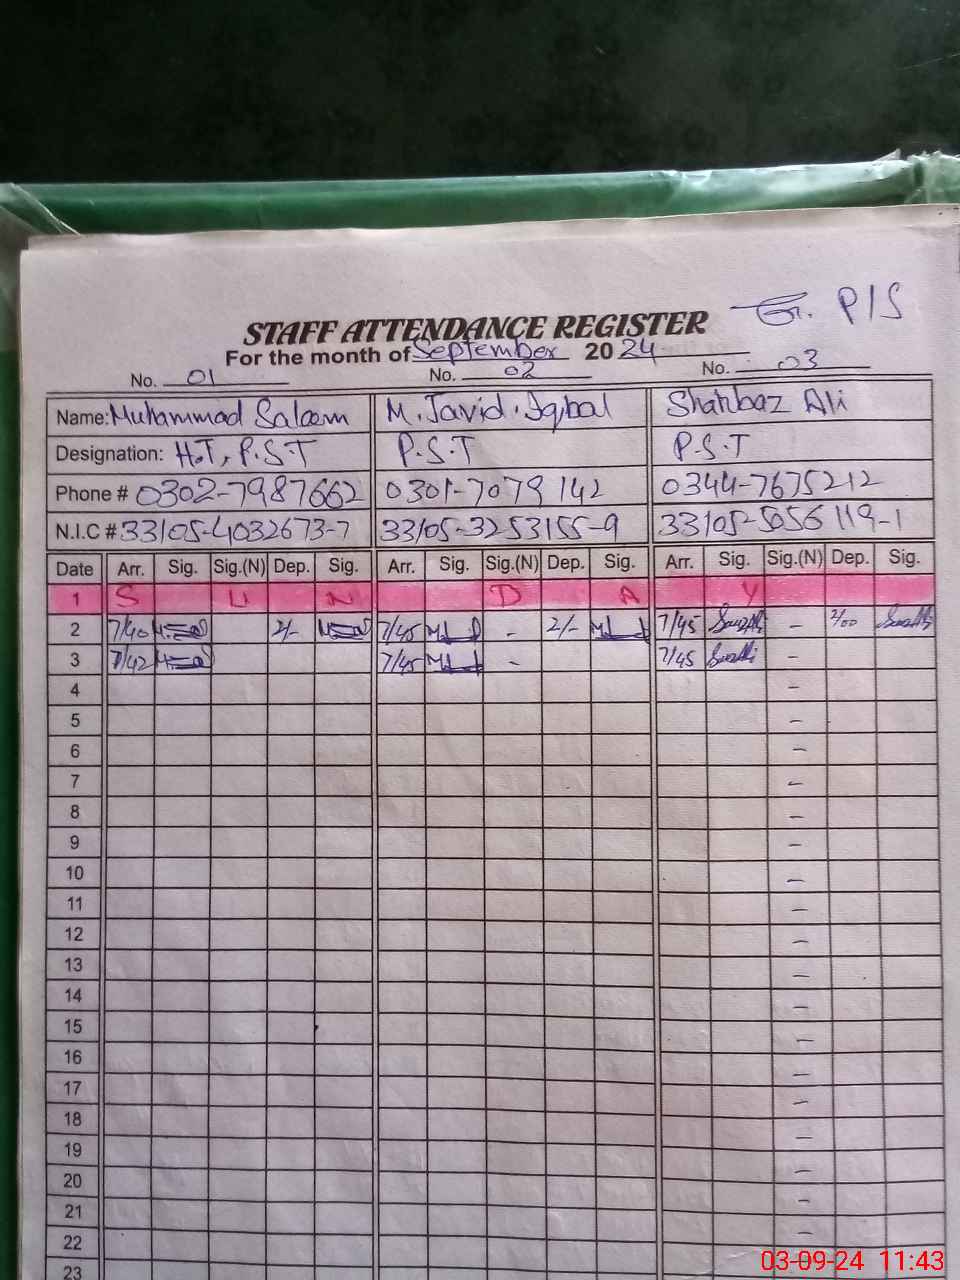 P/S
STAFF ATTENDANCE REGISTER
For the month of September 2024
No. 01 No. 02 No. 03
Name: Muhammad Saleem M. Javid Iqbal Shahbaz Ali
Designation: H.T, P.S.T P.S.T P.S.T
Phone # 0302-7987662 0301-7079142 0344-7675212
N.I.C # 33105-4032673-7 33105-3253155-9 33105-5056119-1
Date Arr. Sig. Sig.(N) Dep. Sig. Arr. Sig. Sig.(N) Dep. Sig. Arr. Sig. Sig.(N) Dep. Sig.
1 S U N D A Y
2 7/40 2/- 7/45 - 2/- 7/45 - 2/00
3 7/42 7/45 - 7/45 -
4 -
5 -
6 -
7 -
8 -
9 -
10 -
11 -
12 -
13 -
14 -
15 -
16 -
17 -
18 -
19 -
20 -
21 -
22 -
23
03-09-24 11:43